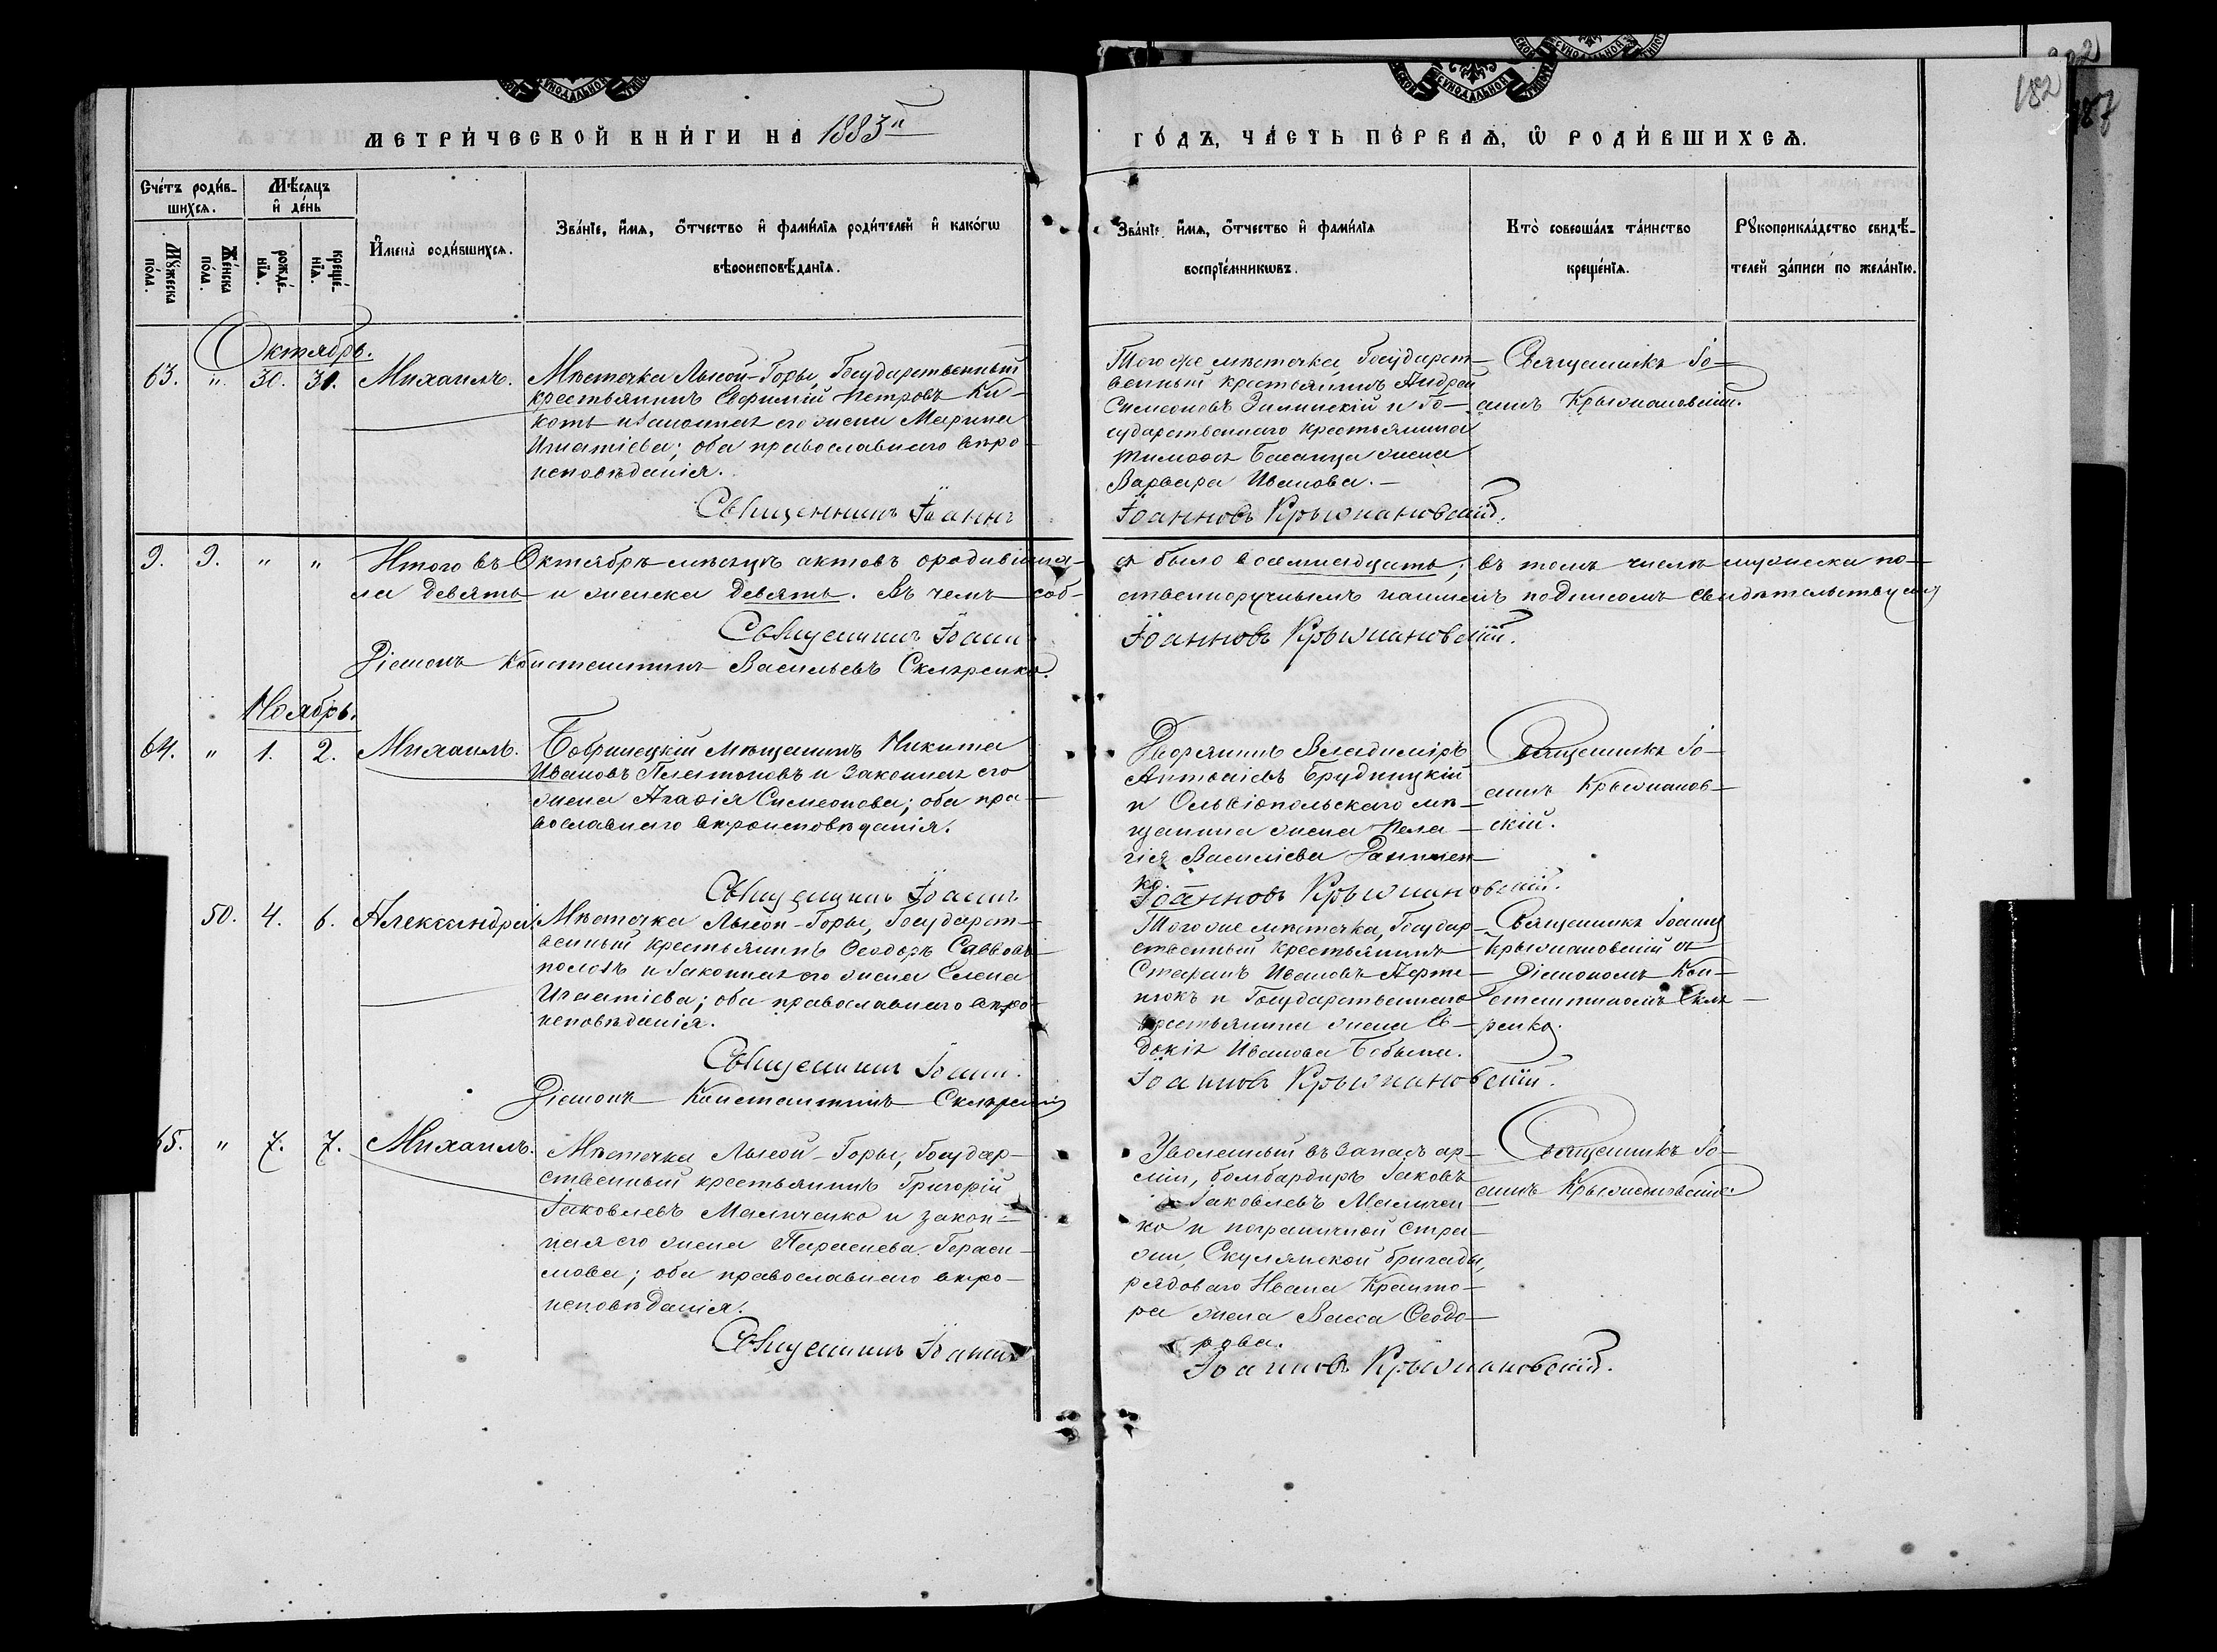 МЕТРИ́ЧЕСКОЙ КНИ́ГИ НА 1883й
ГО́ДЪ, ЧА́СТЬ ПЕ́РВАѦ, Ѡ РОДИ́ВШИХСѦ.
182
Сче́тъ роди́в-
шихсѧ.
Мѣ́сѧцъ
и҆ де́нь
Мꙋ́жеска
по́ла.
Же́нска
по́ла.
рожде́-
нїѧ.
креще́-
нїѧ.
И҆мена̀ роди́вшихсѧ.
Зва́нїе, и҆́мѧ, ѻ҆́тчество и҆ фами́лїѧ роди́телей и҆ како́гѡ
вѣроисповѣ́данїѧ.
Зва́нїе, и҆́мѧ, ѻ҆́тчество и҆ фами́лїѧ
воспрїе́мникѡвъ.
Кто̀ соверша́лъ та́инство
креще́нїѧ.
Рꙋкоприкла́дство свидѣ́-
телей за́писи по жела́нїю.
Октябрь.
63. " 30. 31. Михаилъ.
Мѣстечка Лысой-Горы, Государственный
крестьянинъ Евфимій Петровъ Ки-
котъ и законная его жена Марина
Игнатіева; оба православнаго вѣро-
исповѣданія.
Священникъ Іоаннъ
Того же мѣстечка, Государст-
венный крестьянинъ Андрей
Симеоновъ Зилинскій и Го-
сударственнаго крестьянина
Тимоѳея Басанца жена
Варвара Иванова.-
Іоанновъ Крыжановскій.
Священникъ Іо-
аннъ Крыжановскій.
9. 9. " " Итого въ Октябрѣ мѣсяцѣ актовъ о родивших-
ся было восемнадцать; въ томъ числѣ мужеска по-
ла девять и женска девять. Въ чемъ соб-
ственноручнымъ нашимъ подписомъ свидѣтельствуемъ
Священникъ Іоаннъ
Іоанновъ Крыжановскій.
Діаконъ Константинъ Васильевъ Скляренко.
Ноябрь.
64. " 1. 2. Михаилъ.
Бобринецкій мѣщанинъ Никита
Ивановъ Платоновъ и законная его
жена Агафія Симеонова; оба пра-
вославнаго вѣроисповѣданія.
Священникъ Іоаннъ
Дворянинъ Владиміръ
Антоніевъ Брудницкій
и Ольвіопольскаго мѣ-
щанина жена Пела-
гія Василіева Даничен-
ко.
Іоанновъ Крыжановскій.
Священникъ Іо-
аннъ Крыжанов-
скій.
50. 4. 6. Александра.
Мѣстечка Лысой-Горы, Государст-
венный крестьянинъ Ѳеодоръ Саввовъ
и законная его жена Елена
Игнатіева; оба православнаго вѣро-
исповѣданія.
Священникъ Іоаннъ
Діаконъ Константинъ Скляренко
Того же мѣстечка, Государ-
ственный крестьянинъ
Стефанъ Ивановъ
и Государственнаго
крестьянина жена Ев-
докія Иванова Бобына.
Іоанновъ Крыжановскій.
Священникъ Іоаннъ
Крыжановскій съ
Діакономъ Кон-
стантиномъ Скля-
ренко.
65. " 7. 7. Михаилъ.
Мѣстечка Лысой-Горы, Государ-
ственный крестьянинъ Григорій
Іаковлевъ Маличенко и закон-
ная его жена Параскева Гераси-
мова; оба православнаго вѣро-
исповѣданія.
Священникъ Іоаннъ
Уволенный въ запасъ ар-
міи, бомбардиръ Іаковъ
Іаковлевъ Маличен-
ко и пограничной стра-
жи, Скулянской бригады,
рядоваго Ивана Кранто-
ра жена Васса Ѳеодо-
рова.
Іоанновъ Крыжановскій.
Священникъ Іо-
аннъ Крыжановскій.